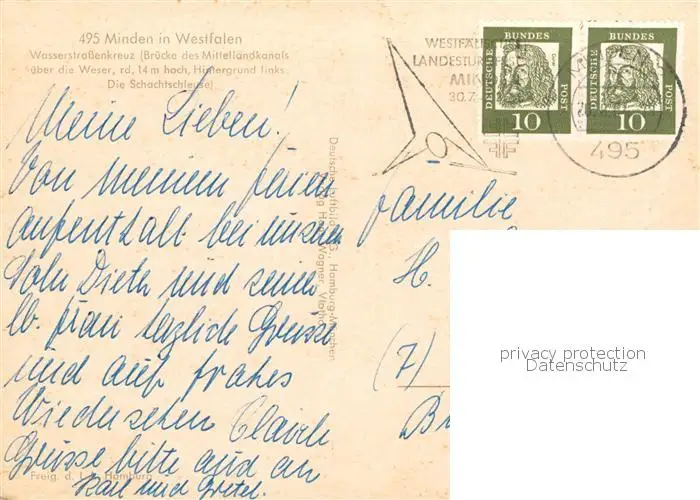 495 Minden in Westfalen
Wasserstraßenkreuz (Brücke des Mittellandkanals
über die Weser, rd. 14 m hoch, Hintergrund links
Die Schachtschleuse)
Meine Lieben!
Von meinem
Aufenthalt bei unserem
Sohn Dieter und seiner
lb. Frau herzliche Grüsse
und auf frohes
Wiedersehen
Grüsse bitte auch an
Karl und Gretel.
Freig. d. Hamburg
Deutsche Luftbild K.G., Hamburg-München
Wagner, Vlotho
WESTFÄLISCHES
LANDESTURN
MINDEN
30.7.
DEUTSCHE BUNDES POST 10
DEUTSCHE BUNDES POST 10
495
Familie
H.
(7)
privacy protection
Datenschutz